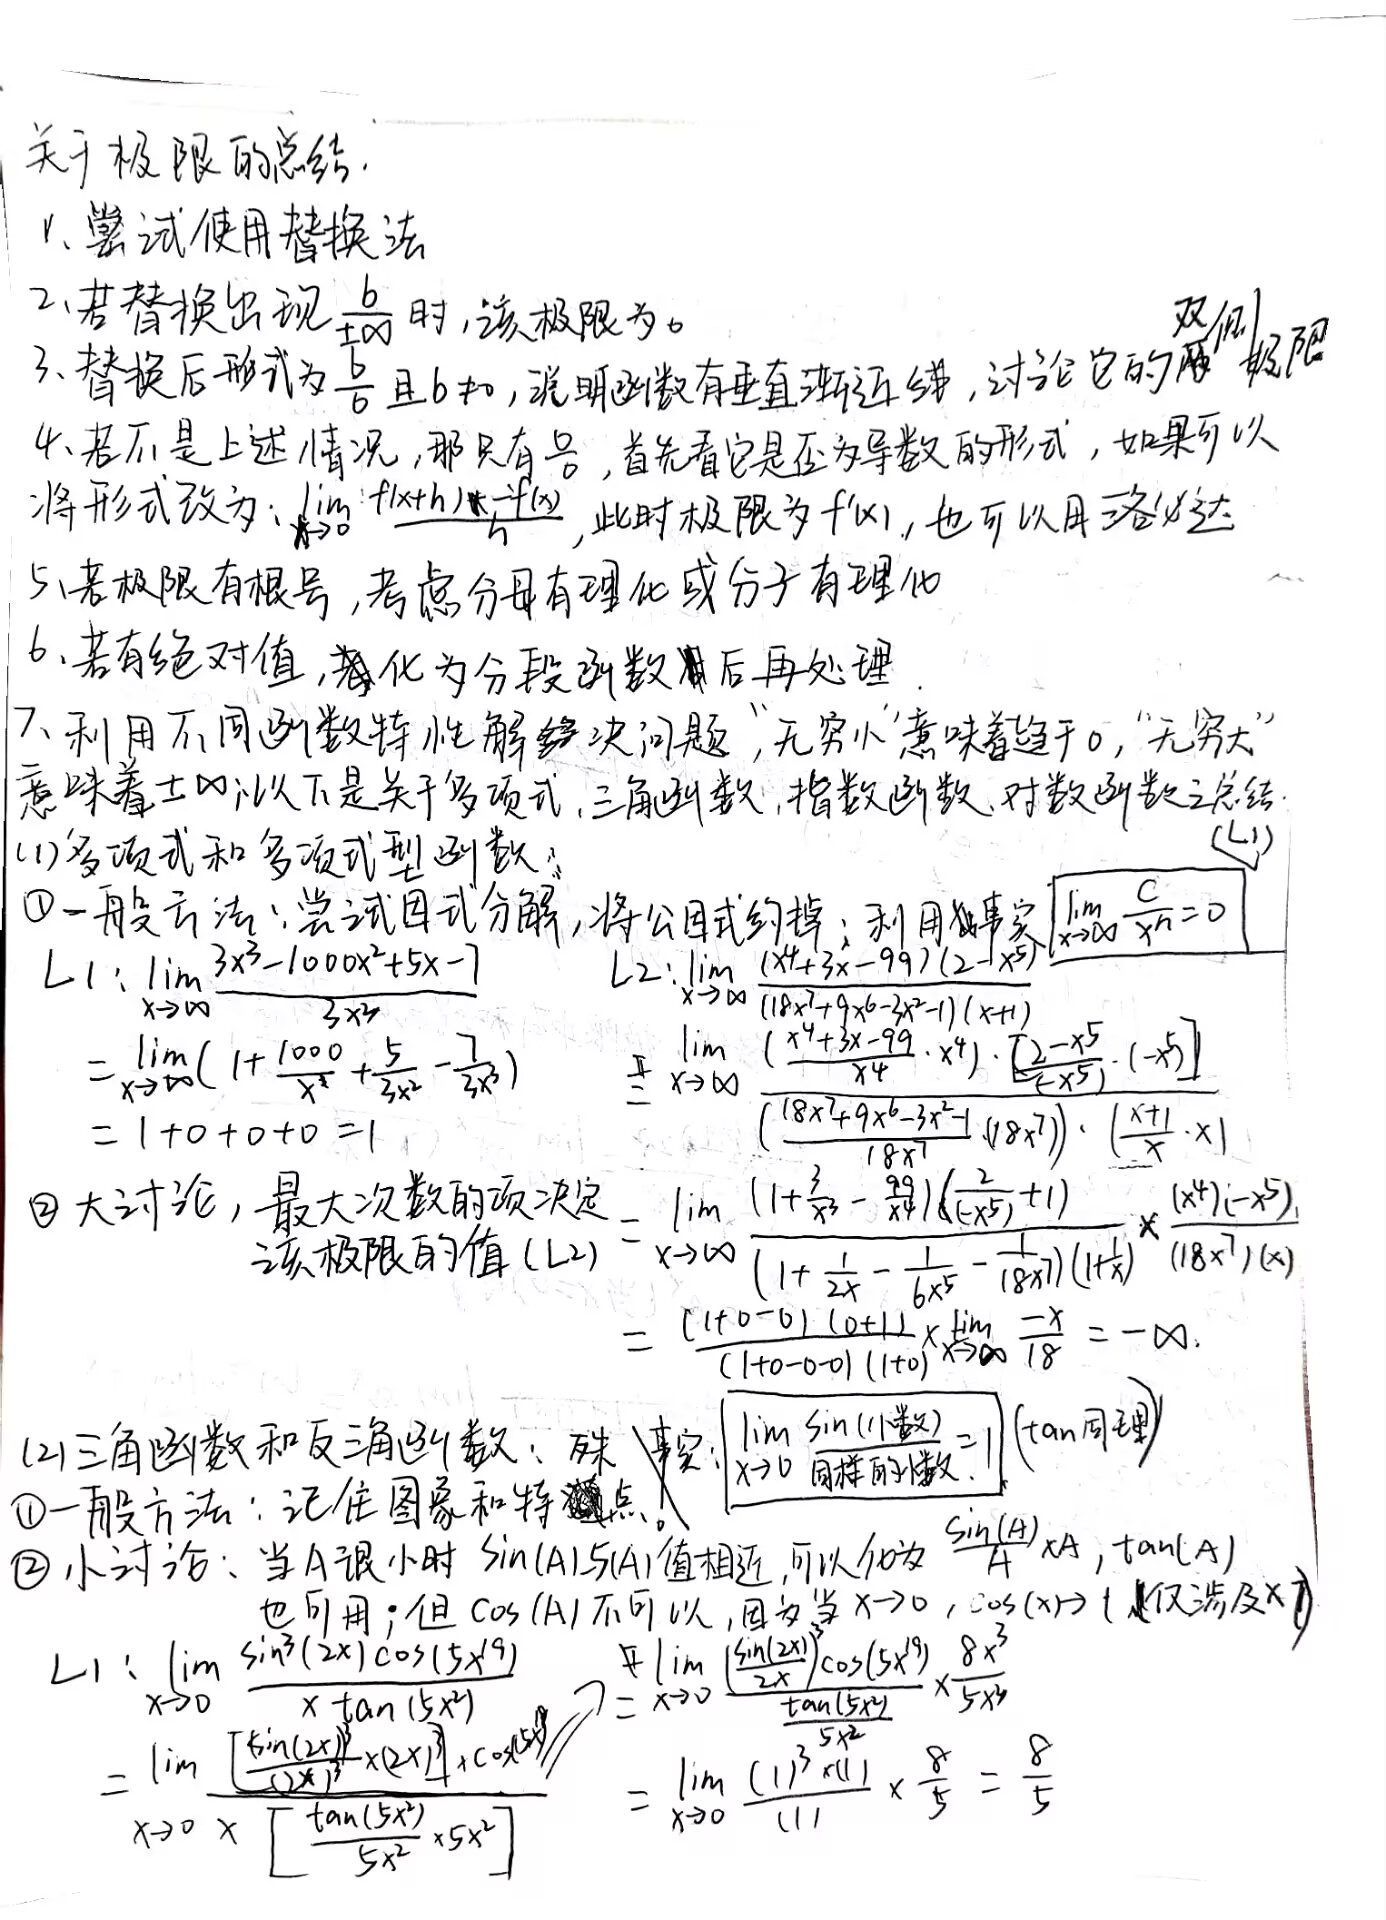 关于极限的总结.
1、尝试使用替换法
2、若替换出现 b/±∞ 时,该极限为0
3、替换后形式为 b/0 且b≠0,说明函数有垂直渐近线,讨论它的双侧极限
4、若不是上述情况,那只有 0/0,首先看它是否为导数的形式,如果可以
将形式改为: lim h→0 (f(x+h)-f(x))/h ,此时极限为f'(x),也可以用洛必达
5、若极限有根号,考虑分母有理化或分子有理化
6、若有绝对值,化为分段函数后再处理.
7、利用不同函数特性解决问题,"无穷小"意味着趋于0,"无穷大"
意味着±∞;以下是关于多项式,三角函数,指数函数、对数函数之总结.
(1)多项式和多项式型函数: (L1)
①一般方法:尝试因式分解,将公因式约掉;利用事实 lim x→∞ C/x^n = 0
L1: lim x→∞ (3x³-1000x²+5x-7)/(3x³)
= lim x→∞ (1+1000/x+5/(3x²)-7/(3x³))
= 1+0+0+0 = 1
②大讨论,最大次数的项决定
该极限的值(L2)
L2: lim x→∞ (x⁴+3x-99)(2-x⁵)/((18x⁷+9x⁶-3x²-1)(x+1))
= lim x→∞ ((x⁴+3x-99)/x⁴·x⁴)·[(2-x⁵)/(-x⁵)·(-x⁵)]/(((18x⁷+9x⁶-3x²-1)/(18x⁷)·(18x⁷))·((x+1)/x·x))
= lim x→∞ (1+3/x³-99/x⁴)(2/(-x⁵)+1)/((1+1/(2x)-1/(6x⁵)-1/(18x⁷))(1+1/x)) × (x⁴)(-x⁵)/((18x⁷)(x))
= (1+0-0)(0+1)/((1+0-0-0)(1+0)) × lim x→∞ -x/18 = -∞.
(2)三角函数和反三角函数: 事实: lim x→0 sin(小数)/同样的小数 = 1 (tan同理)
①一般方法:记住图象和特点。
②小讨论:当A很小时 sin(A)与(A)值相近,可以化为 sin(A)/A ×A, tan(A)
也可用;但cos(A)不可以,因为当x→0, cos(x)→1 (仅涉及×)
L1: lim x→0 sin³(2x)cos(5x¹⁹)/(x tan(5x²))
= lim x→0 [(sin(2x))³/(2x)³×(2x)³]×cos(5x¹⁹)/(x[tan(5x²)/(5x²)×5x²])
= lim x→0 (sin(2x)/(2x))³cos(5x¹⁹)/(tan(5x²)/(5x²)) × 8x³/5x³
= lim x→0 (1)³×(1)/(1) × 8/5 = 8/5